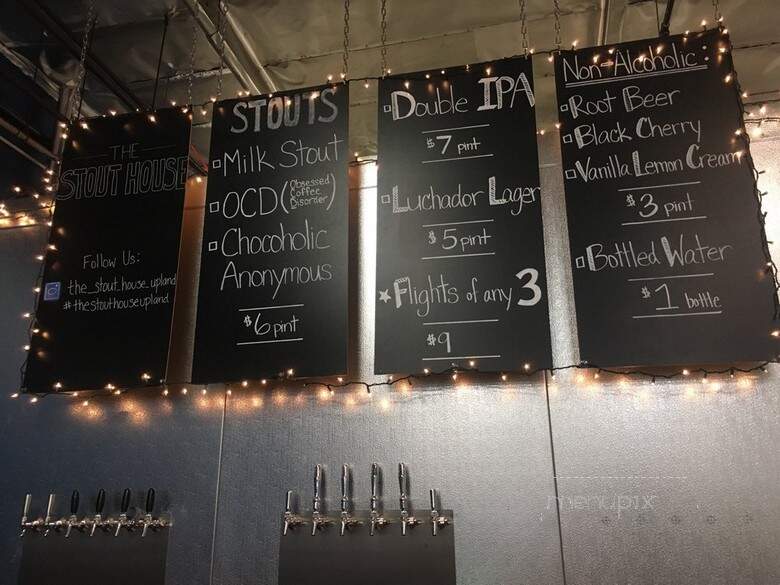 THE
STOUT HOUSE
Follow Us:
the_stout_house_upland
#thestouthouseupland
STOUTS
Milk Stout
OCD (Obsessed
Coffee
Disorder)
Chocoholic
Anonymous
$6 pint
Double IPA
$7 pint
Luchador Lager
$5 pint
★ Flights of any 3
$9
Non-Alcoholic:
Root Beer
Black Cherry
Vanilla Lemon Cream
$3 pint
Bottled Water
$1 bottle
menupix